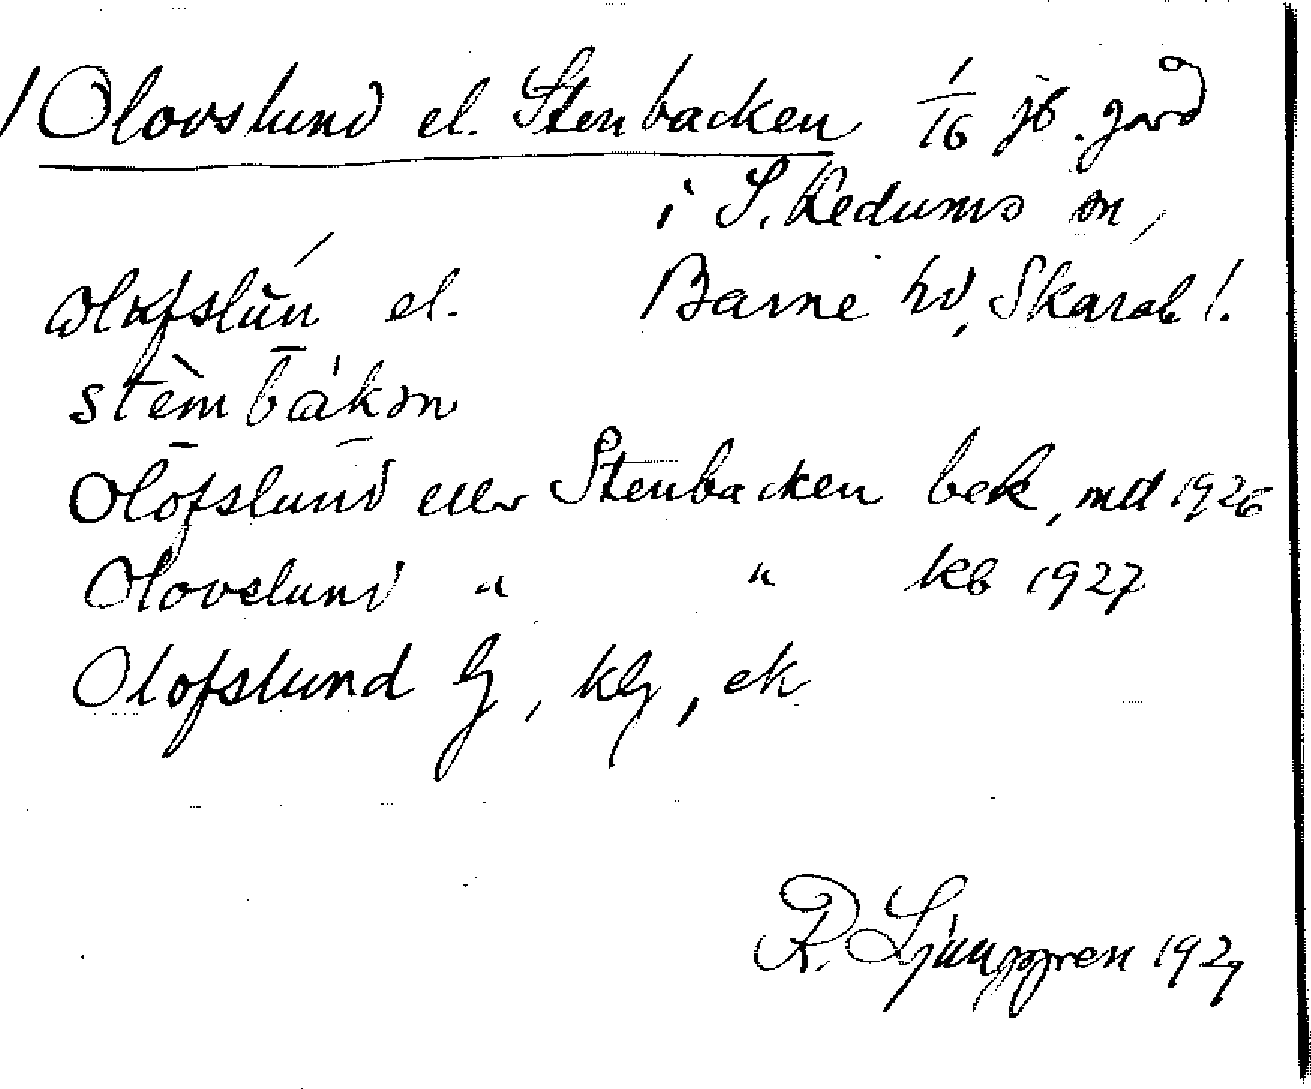 Olovslund el. Stenbacken 1/16 jb. gård
i S. Kedums sn,
Barne hd, Skarab l.
el.
Olofslund eller Stenbacken bek, md 1926
Olovslund " " kb 1927
Olofslund G, kG, ek
R. Ljunggren 1927